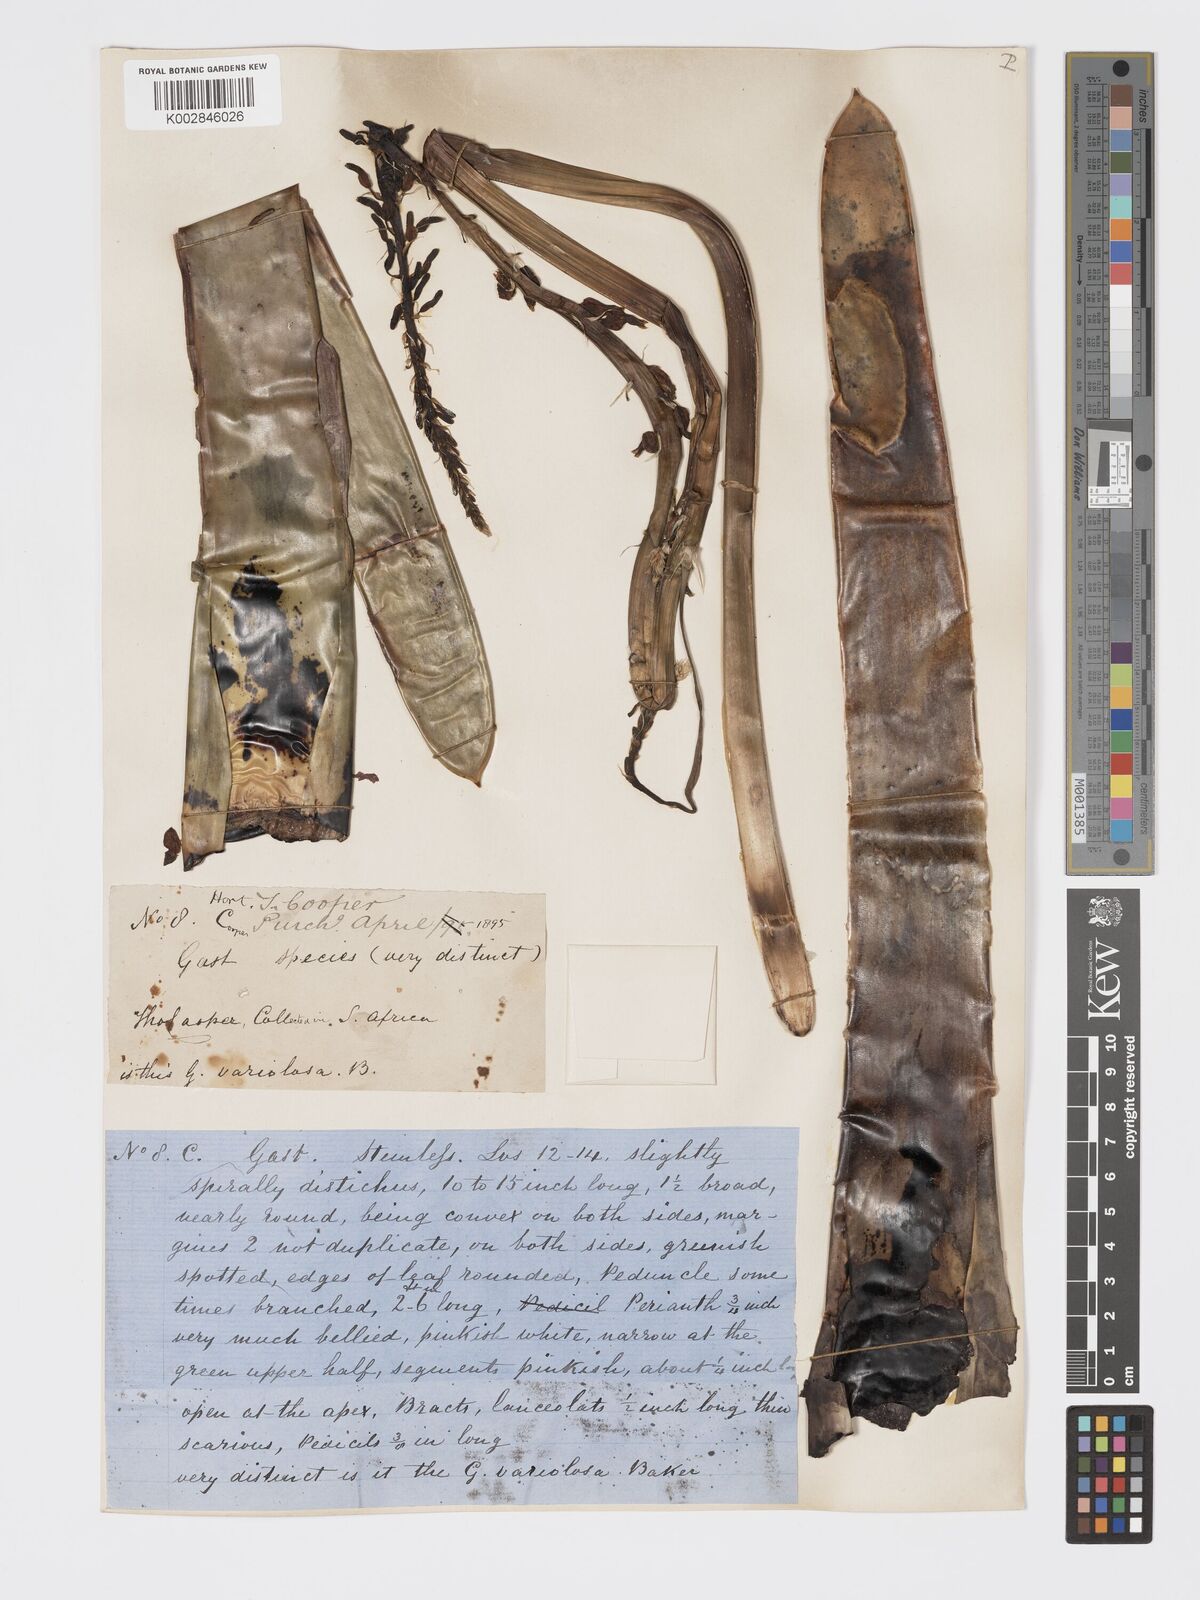 ROYAL BOTANIC GARDENS KEW
K002846026
Hort. T. Cooper
No 8. Cooper Purchd April 1895
Gast species (very distinct)
Thos Cooper, Collected in S. Africa
is this G. variolosa. B.
No 8. C. Gast. Stemless. Lvs 12-14. slightly
spirally distichus, 10 to 15 inch long, 1½ broad,
nearly round, being convex on both sides, mar-
gines 2 not duplicate, on both sides, greenish
spotted, edges of leaf rounded, Peduncle some
times branched, 2-6 long, Pedicil Perianth ¾ inch
very much bellied, pinkish white, narrow at the
green upper half, segments pinkish, about ¼ inch
open at the apex, Bracts, lanceolats ½ inch long thin
scarious, Pedicils in long
very distinct is it the G. variolosa Baker
inches
Density
Don Williams
M001385
centimeters
Royal Botanic Gardens
Kew
0 1 2 3 4 5 6 7 8 9 10
cm
copyright reserved